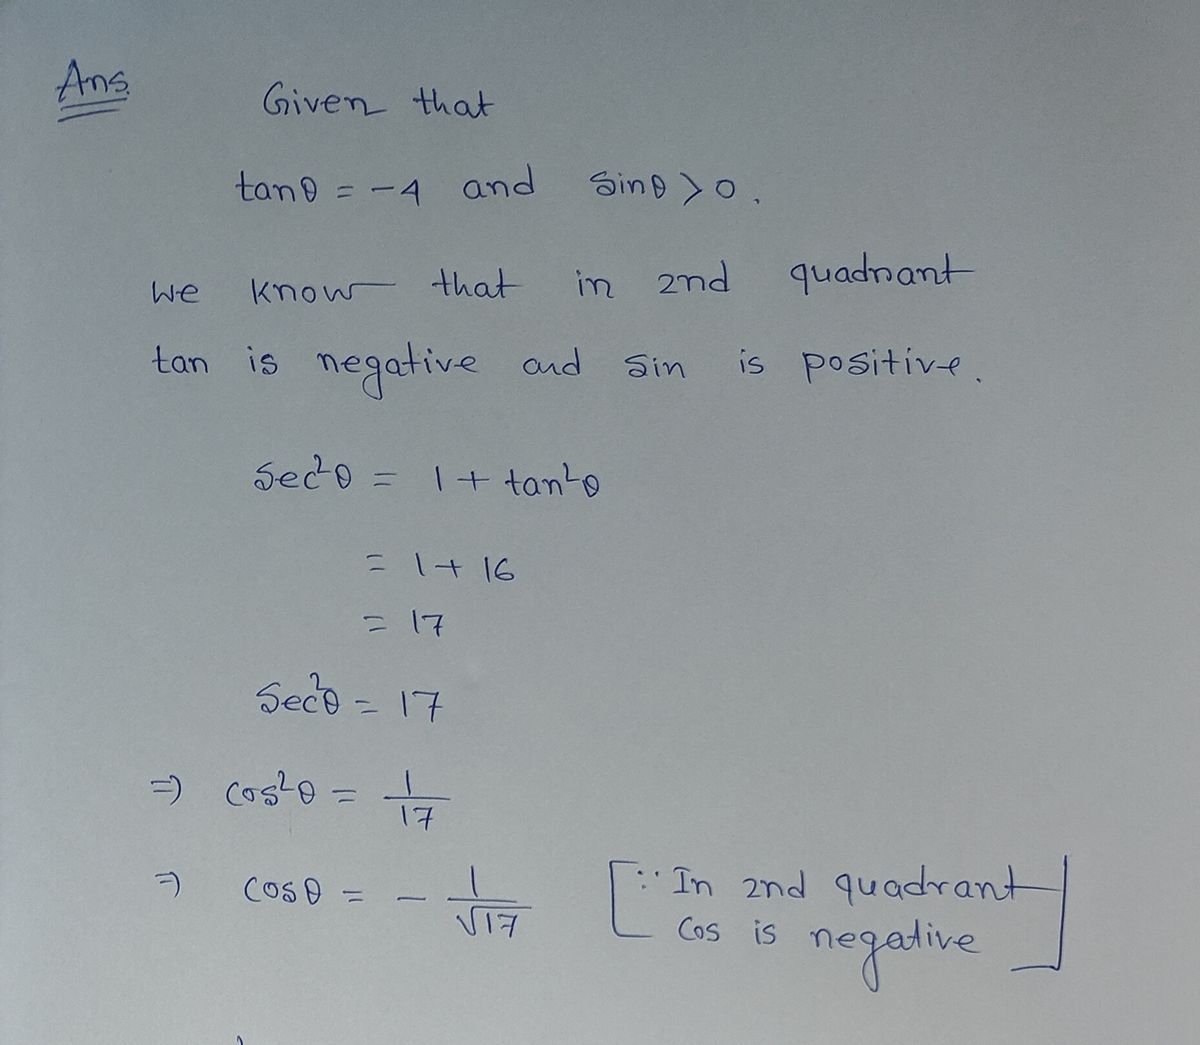 Ans.
Given that
tanθ = -4 and sinθ > 0.
We know that in 2nd quadrant
tan is negative and sin is positive.
Sec²θ = 1 + tan²θ
= 1 + 16
= 17
Sec²θ = 17
⇒ cos²θ = 1/17
⇒ cosθ = - 1/√17 [∵ In 2nd quadrant
Cos is negative]